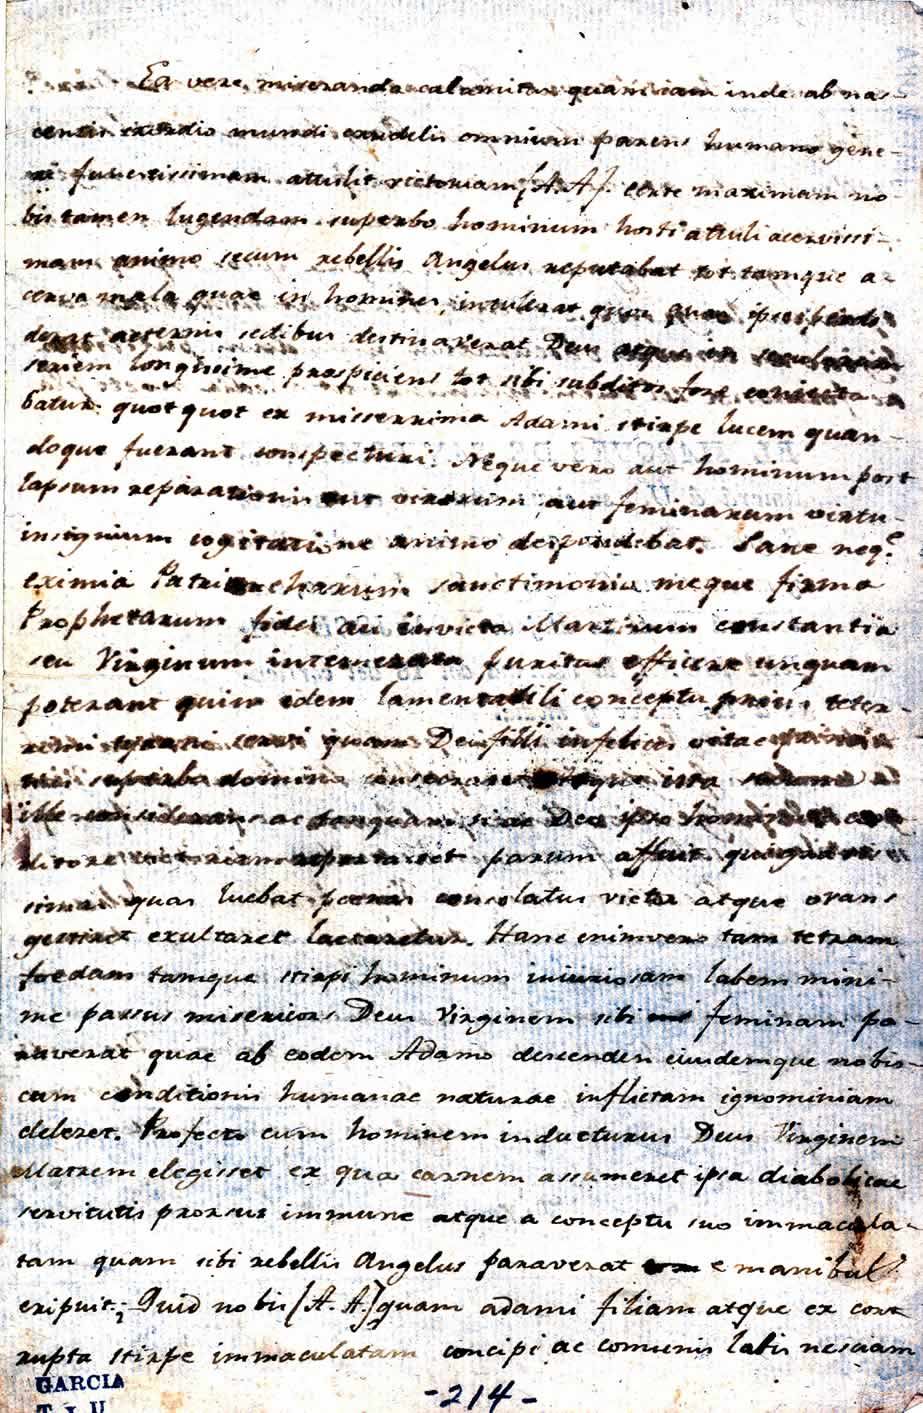 Ea vere miseranda calamitas quam iam inde ab nas-
centis exordio mundi crudelis omnium parens humano gene-
ri funestissimam attulit victoriam [A. A.]. certe maximam no
bis tamen lugendam superbo hominum hosti attuli acervissi-
mam animo secum rebellis Angelus reputabat tot tamque a-
cerva mala quae in homines intulerat
aeternis sedibus destinaverat Deus atque in
seriem longissime prospiciens tot sibi subditos fore coniecta
batur quotquot ex misserrima Adami stirpe lucem quan-
doque fuerant conspecturi. Neque vero aut hominum post
lapsum reparationis aut virorum aut feminarum virtu-
insignium cogitatione animo despondebat. Sane neq.e
eximia Patriarcharum sanctimonia neque firma
Prophetarum fides au invicta Martirum constantia
seu Virginum intemerata puritas efficere unquam
poterant quin edem lamentabili conceptu prius teter-
rimi tyrani servi quam Dei filii infelices vitae
superba domino ista
ille considerans ac tanquam si ac Deo ipso
ditore victoriam reportasset parum affuit
simas quas luebat poenas consolatus victor atque ovans
gestiret exultaret laetaretur. Hanc enimvero tam tetram
foedam tamque stirpi hominum iniuriosam labem mini-
me passus misericors Deus Virginem sibi feminam pa-
raverat quae ab eodem Adamo descenden eiusdemque nobis-
cum conditionis humanae naturae inflictam ignominiam
deleret. Profecto cum hominem inducturus Deus Virginem
Matrem elegisset ex qua carnem assumeret ipsa diabolicae
servitutis prorsus immune atque a conceptu suo immacula-
tam quam sibi rebellis Angelus paraverat e manibus
eripuit. Quid nobis [A. A.] quam adami filiam atque ex cor
rupta stirpe immaculatam concipi ac comunis labis nesciam
GARCIA
-214-